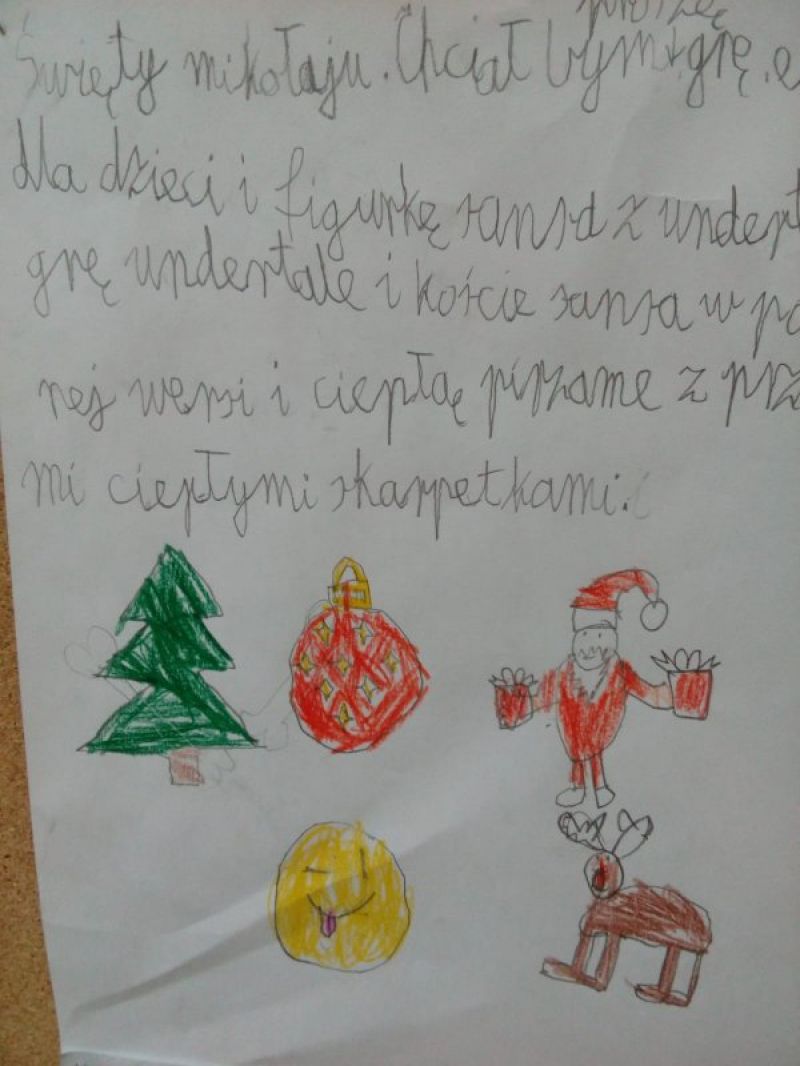 proszę
Święty mikołaju. Chciał bym grę. e
dla dzieci i figurkę sansa z undert
grę undertale i koście sansa w po
rej wersi i ciepłą pirzame z prz
mi ciepłymi skarpetkami.